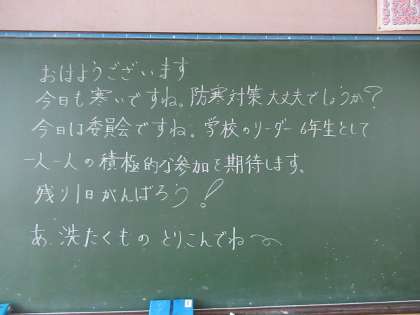 おはようございます
今日も寒いですね。防寒対策大丈夫でしょうか？
今日は委員会ですね。学校のリーダー6年生として
一人一人の積極的な参加を期待します。
残り1日がんばろう！
あ、洗たくもの とりこんでね〜